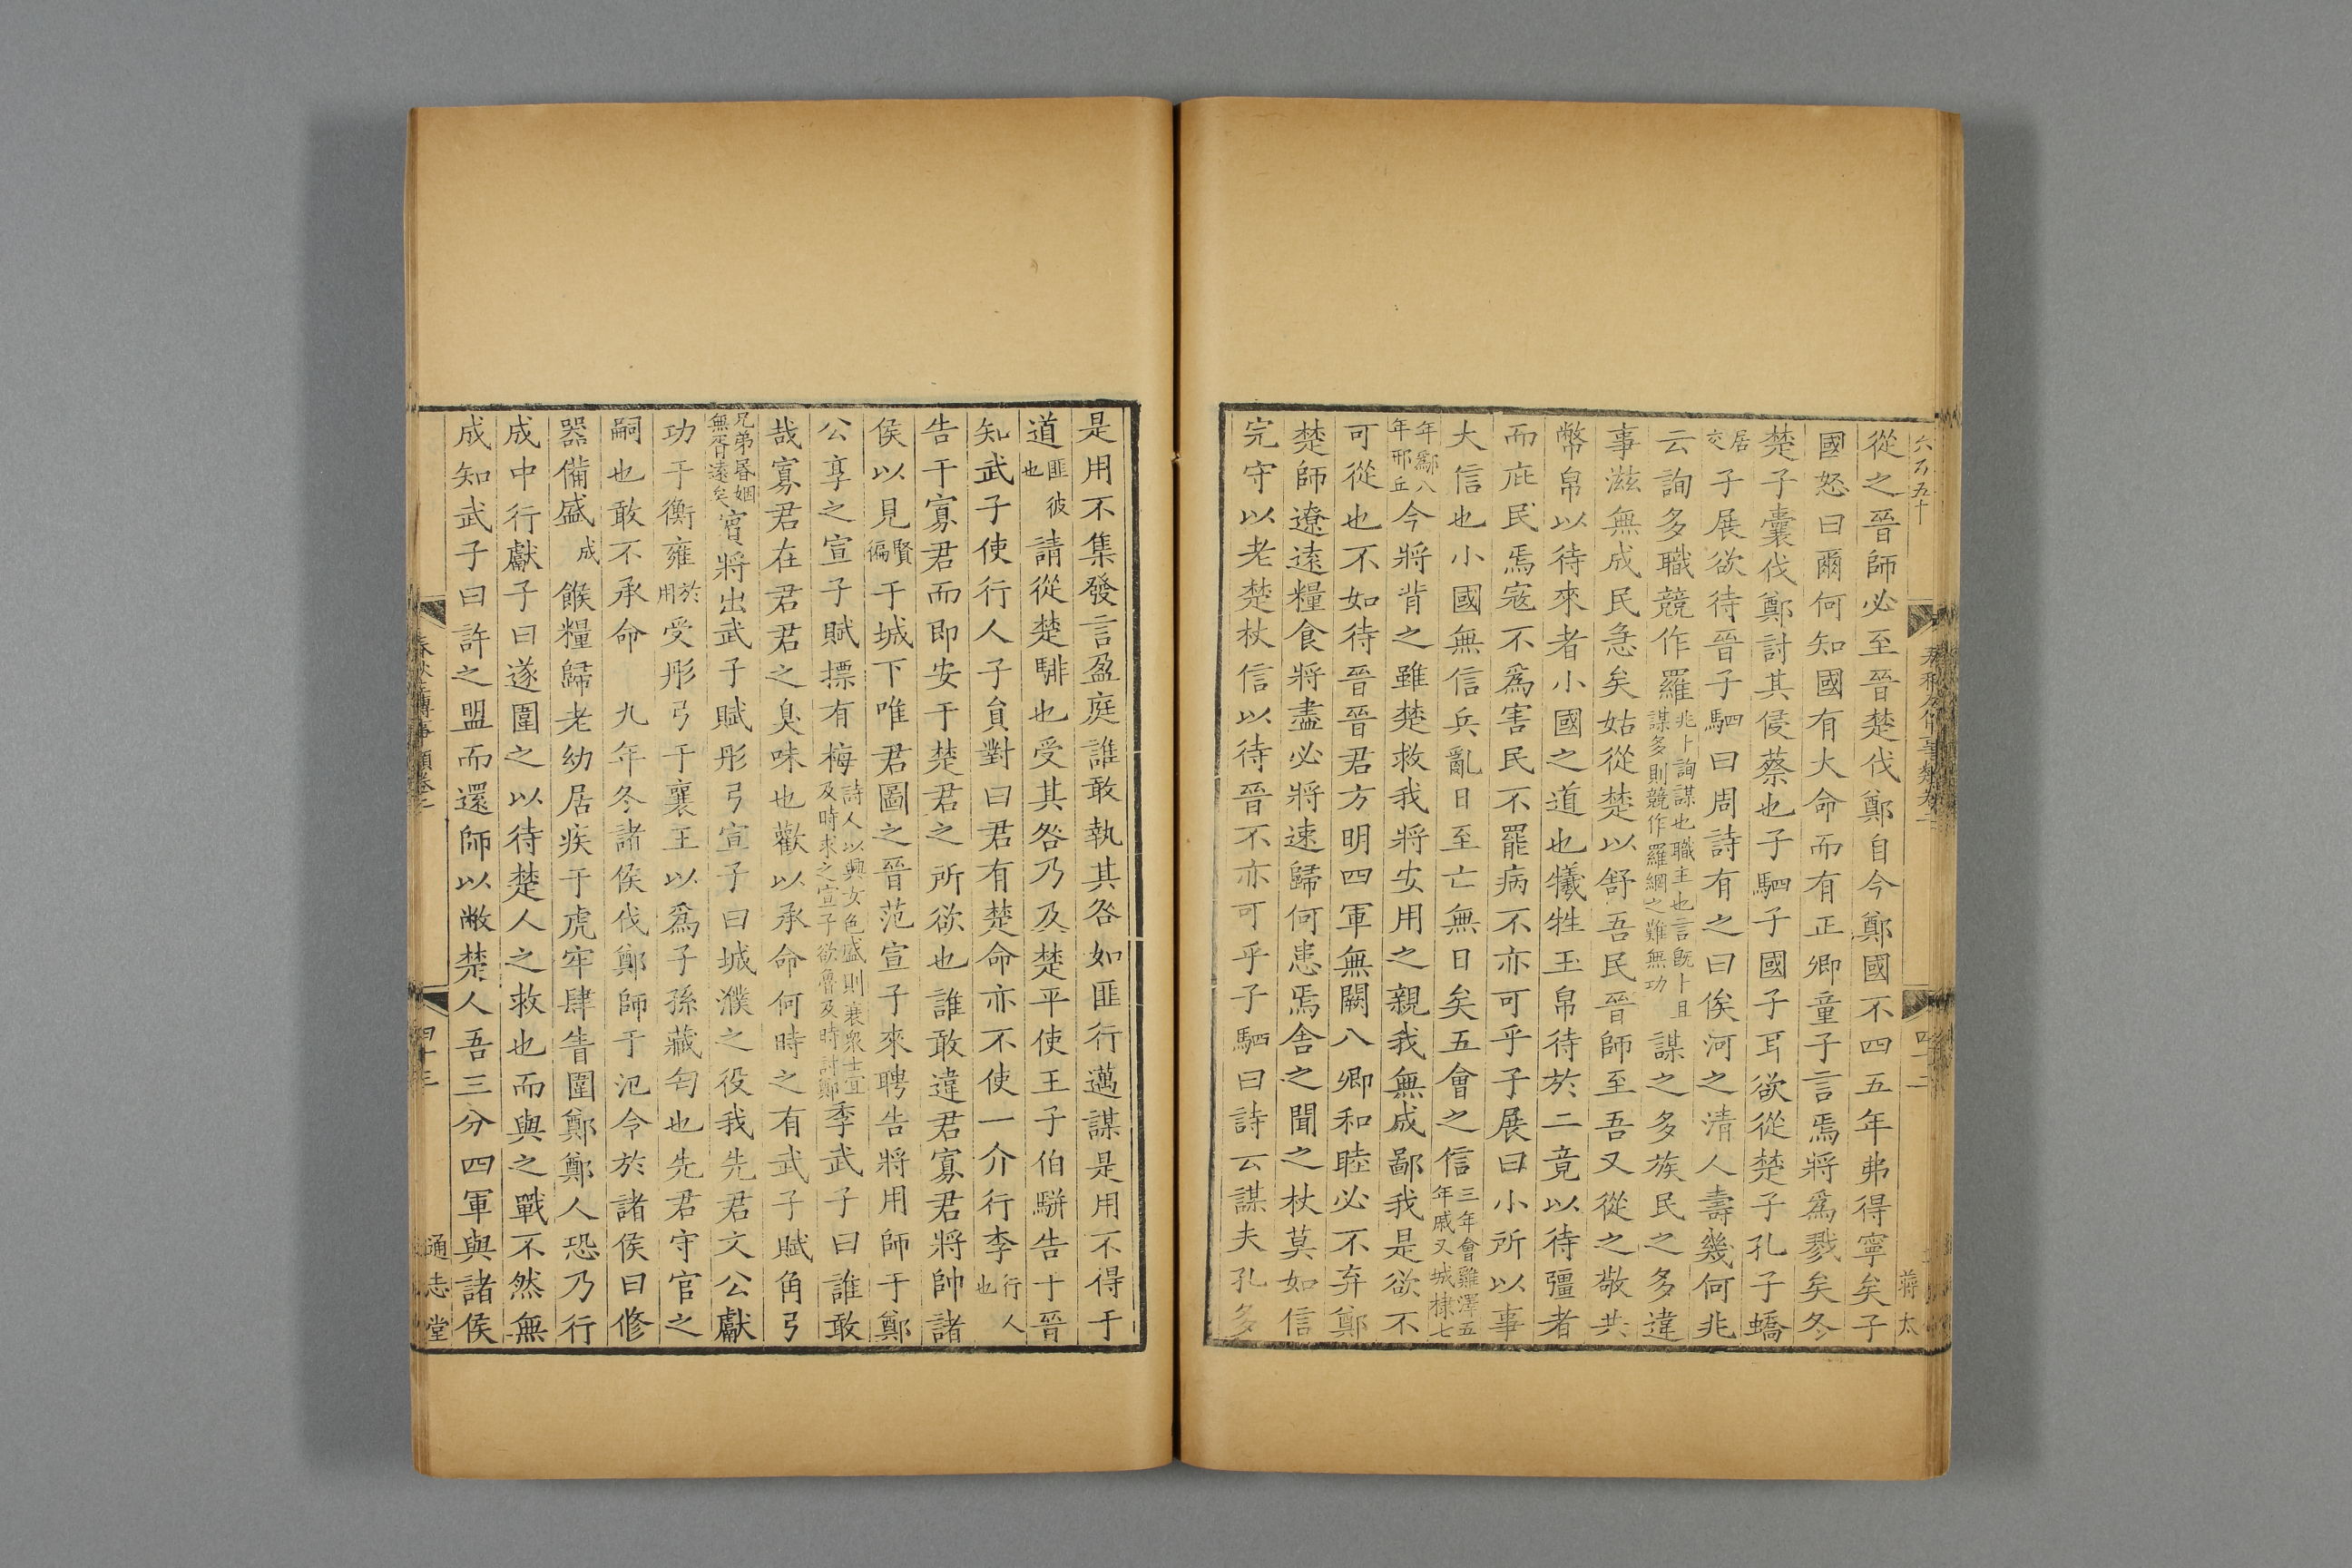 從之晉師必至晉楚伐鄭自今鄭國不四五年弗得寧矣子
國怒曰爾何知國有大命而有正卿童子言焉將爲戮矣冬
楚子囊伐鄭討其侵蔡也子駟子國子耳欲從楚子孔子蟜
居交子展欲待晉子駟曰周詩有之曰俟河之清人壽幾何兆
云詢多職競作羅兆卜詢謀也職主也言旣卜且謀多則競作羅網之難無功謀之多族民之多違
事滋無成民急矣姑從楚以舒吾民晉師至吾又從之敬共
幣帛以待來者小國之道也犧牲玉帛待於二竟以待彊者
而庇民焉寇不爲害民不罷病不亦可乎子展曰小所以事
大信也小國無信兵亂日至亡無日矣五會之信三年會雞澤五年戚又城棣七
年鄬八年邢丘今將背之雖楚救我將安用之親我無成鄙我是欲不
可從也不如待晉晉君方明四軍無闕八卿和睦必不弃鄭
楚師遼遠糧食將盡必將速歸何患焉舍之聞之杖莫如信
完守以老楚杖信以待晉不亦可乎子駟曰詩云謀夫孔多
是用不集發言盈庭誰敢執其咎如匪行邁謀是用不得于
道匪彼也請從楚騑也受其咎乃及楚平使王子伯駢告于晉
知武子使行人子員對曰君有楚命亦不使一介行李行人也
告于寡君而即安于楚君之所欲也誰敢違君寡君將帥諸
侯以見賢徧于城下唯君圖之晉范宣子來聘告將用師于鄭
公享之宣子賦摽有梅詩人以興女色盛則衰衆士宜及時求之宣子欲魯及時討鄭季武子曰誰敢
哉寡君在君君之臭味也歡以承命何時之有武子賦角弓
兄弟昬姻無胥遠矣賓將出武子賦彤弓宣子曰城濮之役我先君文公獻
功于衡雍於用受彤弓于襄王以爲子孫藏匄也先君守官之
嗣也敢不承命　九年冬諸侯伐鄭師于氾令於諸侯曰修
器備盛成餱糧歸老幼居疾于虎牢肆眚圍鄭鄭人恐乃行
成中行獻子曰遂圍之以待楚人之救也而與之戰不然無
成知武子曰許之盟而還師以敝楚人吾三分四軍與諸侯
通志堂